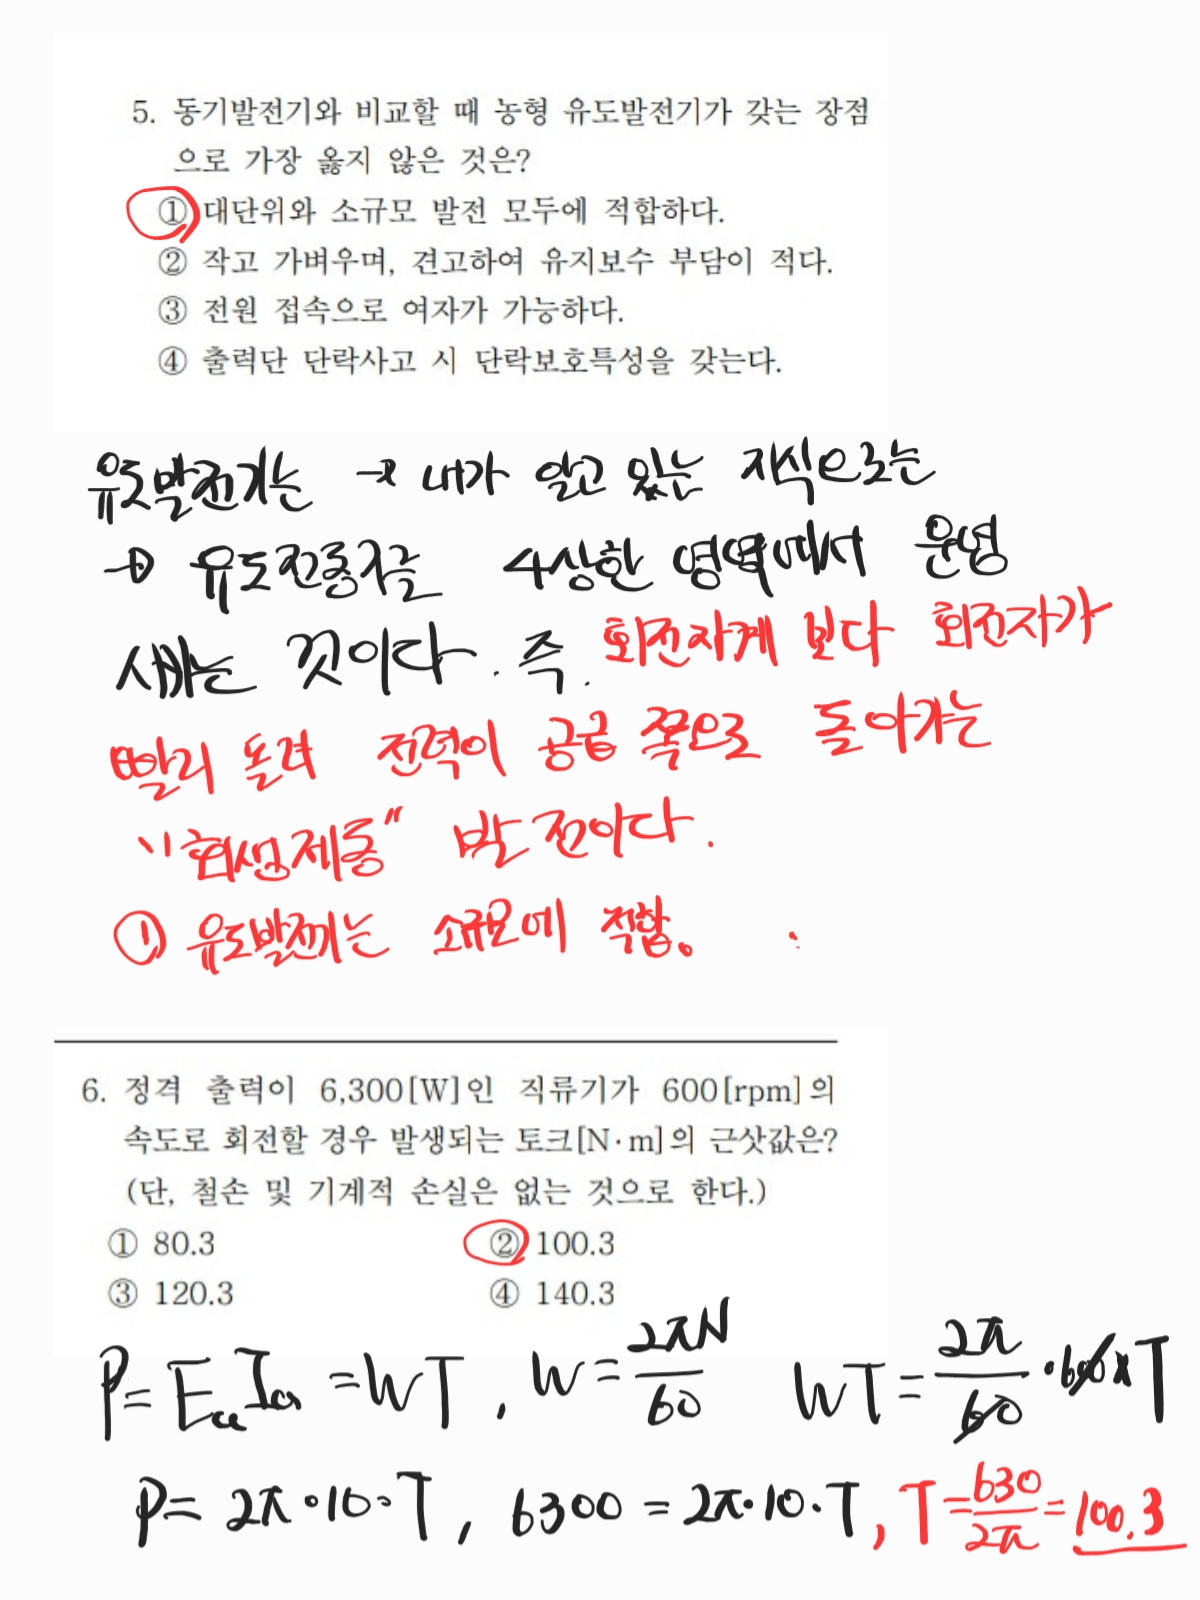 5. 동기발전기와 비교할 때 농형 유도발전기가 갖는 장점
으로 가장 옳지 않은 것은?
① 대단위와 소규모 발전 모두에 적합하다.
② 작고 가벼우며, 견고하여 유지보수 부담이 적다.
③ 전원 접속으로 여자가 가능하다.
④ 출력단 단락사고 시 단락보호특성을 갖는다.
유도발전기는 → 내가 알고 있는 지식으로는
→ 유도전동기를 4상한 영역에서 운영
시키는 것이다. 즉. 회전자계 보다 회전자가
빨리 돌려 전력이 공급 쪽으로 돌아가는
"회생제동" 발전이다.
① 유도발전기는 소규모에 적합.
6. 정격 출력이 6,300[W]인 직류기가 600[rpm]의
속도로 회전할 경우 발생되는 토크[N·m]의 근삿값은?
(단, 철손 및 기계적 손실은 없는 것으로 한다.)
① 80.3 ② 100.3
③ 120.3 ④ 140.3
P = EaIa = WT, W = 2πN/60 WT = 2π/60 · 600 x T
P = 2π·10·T, 6300 = 2π·10·T, T = 630/2π = 100.3